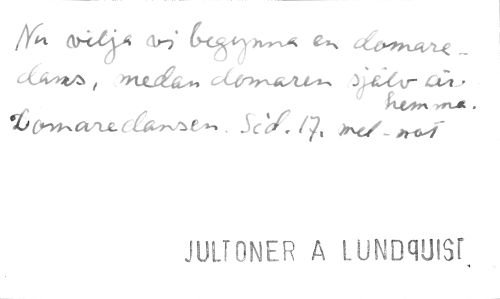 Nu vilja vi begynna en domare-
dans, medan domaren själv är
hemma.
Domaredansen. Sid. 17. mel-not
JULTONER A LUNDQUIST